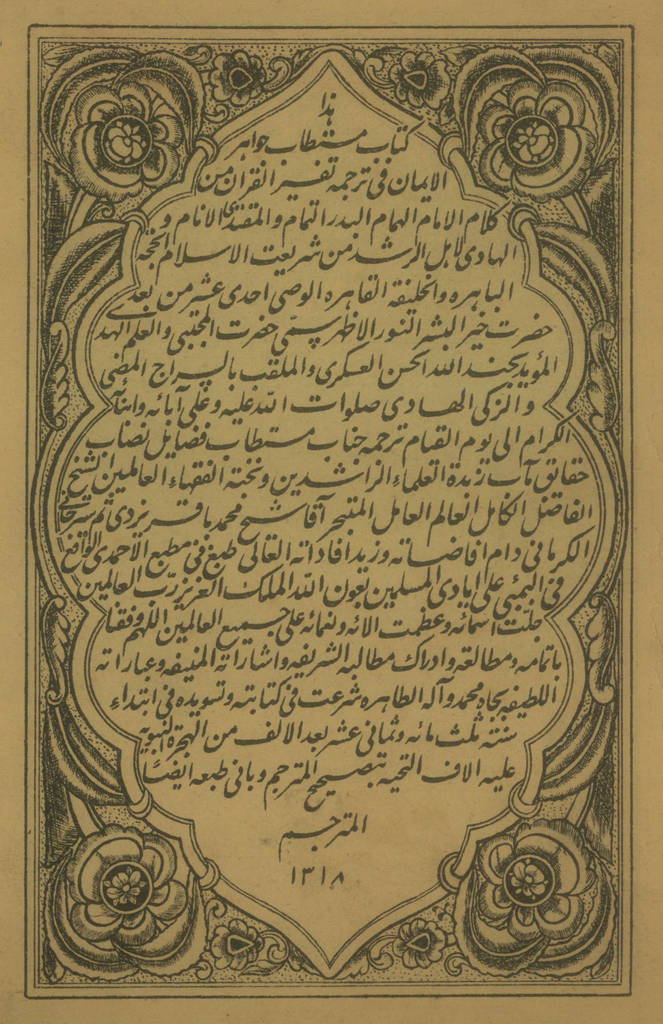 هذا
كتاب مستطاب جواهر
الايمان فى ترجمه تفسير القران من
كلام الامام الهمام البدر التمام والمقتدى الانام و
الهادى لاهل الرشد من شريعت الاسلام الحجه
الباهره والخليفة القاهره الوصى احدى عشر من بعدى
حضرت خير البشر النور الاظهر سمّى حضرت المجتبى والعلم الهد
المؤيد بجند الله الحسن العسكرى والملقب بالسراج المضى
و الزكى الهادى صلوات الله عليه وعلى آبائه وابنآ
الكرام الى يوم القيام ترجمه جناب مستطاب فضايل نصاب
حقايق مآب زبدة العلماء الراشدين ونخبة الفقهاء العالمين الشيخ
الفاضل الكامل العالم العامل المتبحر آقا شيخ محمد باقر يزدى ثم
الكرمانى دام افاضاته وزيد افاداته العالى طبع فى مطبع الاحمدى الواقع
فى البمبئى على ايادى المسلمين بعون الله الملك العزيز ربّ العالمين
جلّت اسمائه وعظمت الائه ونعمائه على جميع العالمين اللهم وفقنا
باتمامه ومطالعته وادراك مطالبه الشريفه واشاراته المنيفه وعباراته
اللطيفه بجاه محمد وآله الطاهره شرعت فى كتابته وتسويده فى ابتداء
سنته ثلث مائه وثمانى عشر بعد الالف من الهجرة النبويه
عليه الاف التحيه بتصحيح المترجم وبانى طبعه ايضاً
المترجم
١٣١٨